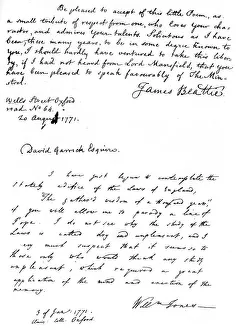 Be pleased to accept of this little Poem, as
a small tribute of respect from one, who loves your cha-
racter, and admires your talents. Solicitous as I have
been, these many years, to be in some degree known to
you, I should hardly have ventured to take this liber-
ty, if I had not heard from Lord Mansfield, that you
have been pleased to speak favourably of The Min-
strel.
James Beattie
Wells Street Oxford
road No 64.
20 August 1771.
David Garrick Esquire.
I have just begun to contemplate the
stately edifice of the Laws of England,
"The gather'd wisdom of a thousand years,"
if you will allow me to parody a line of
Pope. I do not see why the study of the
Laws is called dry and unpleasant, and I
very much suspect that it seems so to
those only who would think any study
unpleasant, which required a great
application of the mind and exertion of the
memory.
Will Jones
3 of Jan. 1771.
Univ. Coll. Oxford.